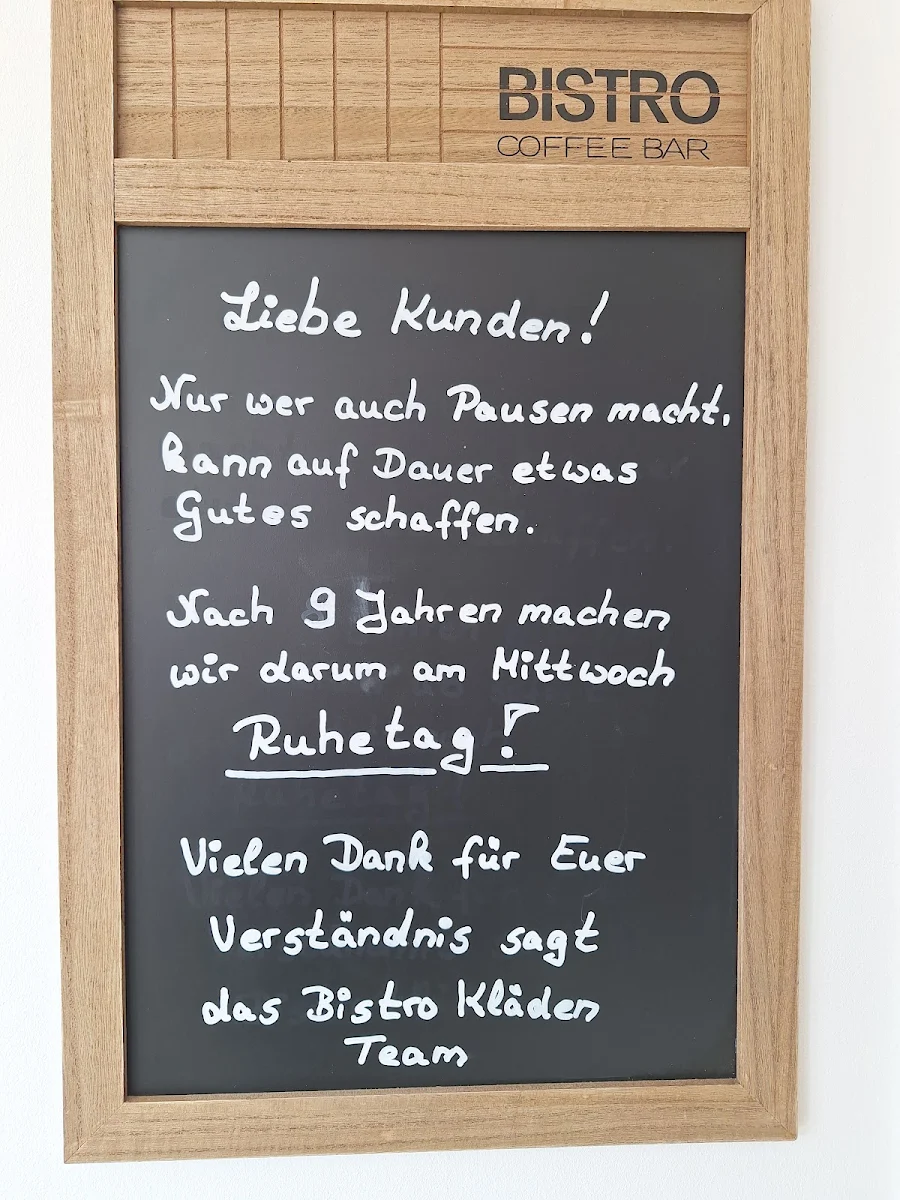 BISTRO
COFFEE BAR
Liebe Kunden!
Nur wer auch Pausen macht,
kann auf Dauer etwas
Gutes schaffen.
Nach 9 Jahren machen
wir darum am Mittwoch
Ruhetag!
Vielen Dank für Euer
Verständnis sagt
das Bistro Kläden
Team